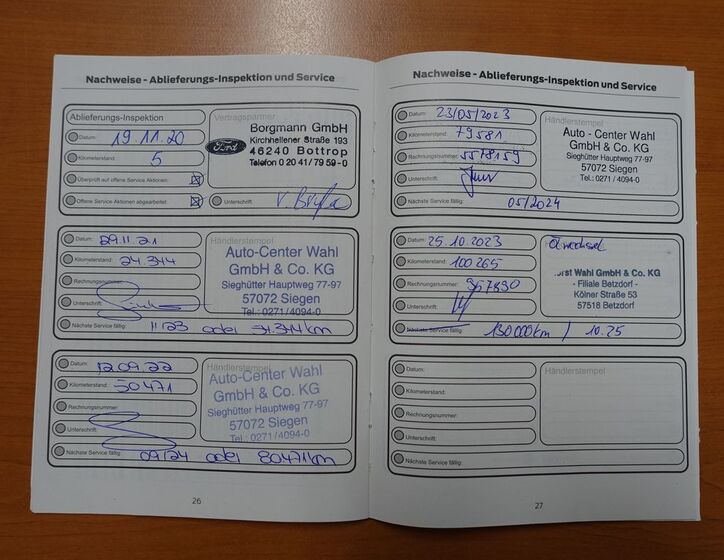 Nachweise - Ablieferungs-Inspektion und Service
Ablieferungs-Inspektion
Datum: 19.11.20
Kilometerstand: 5
Überprüft auf offene Service Aktionen:
Offene Service Aktionen abgearbeitet:
Vertragspartner
Ford
Borgmann GmbH
Kirchhellener Straße 193
46240 Bottrop
Telefon 0 20 41/79 59-0
Unterschrift:
Datum: 29.11.21
Kilometerstand: 24.344
Rechnungsnummer:
Unterschrift:
Händlerstempel
Auto-Center Wahl
GmbH & Co. KG
Sieghütter Hauptweg 77-97
57072 Siegen
Tel.: 0271/4094-0
Nächste Service fällig: 11/23 oder 54.344km
Datum: 12.09.22
Kilometerstand: 50471
Rechnungsnummer:
Unterschrift:
Händlerstempel
Auto-Center Wahl
GmbH & Co. KG
Sieghütter Hauptweg 77-97
57072 Siegen
Tel.: 0271/4094-0
Nächste Service fällig: 09/24 oder 80471km
26
Nachweise - Ablieferungs-Inspektion und Service
Datum: 23/05/2023
Kilometerstand: 79581
Rechnungsnummer: 5578159
Unterschrift:
Händlerstempel
Auto - Center Wahl
GmbH & Co. KG
Sieghütter Hauptweg 77-97
57072 Siegen
Tel.: 0271 / 4094-0
Nächste Service fällig: 05/2024
Datum: 25.10.2023
Kilometerstand: 100265
Rechnungsnummer: 357830
Unterschrift:
Ölwechsel
orst Wahl GmbH & Co. KG
- Filiale Betzdorf -
Kölner Straße 53
57518 Betzdorf
Nächste Service fällig: 130000km / 10.25
Datum:
Kilometerstand:
Rechnungsnummer:
Unterschrift:
Händlerstempel
Nächste Service fällig:
27